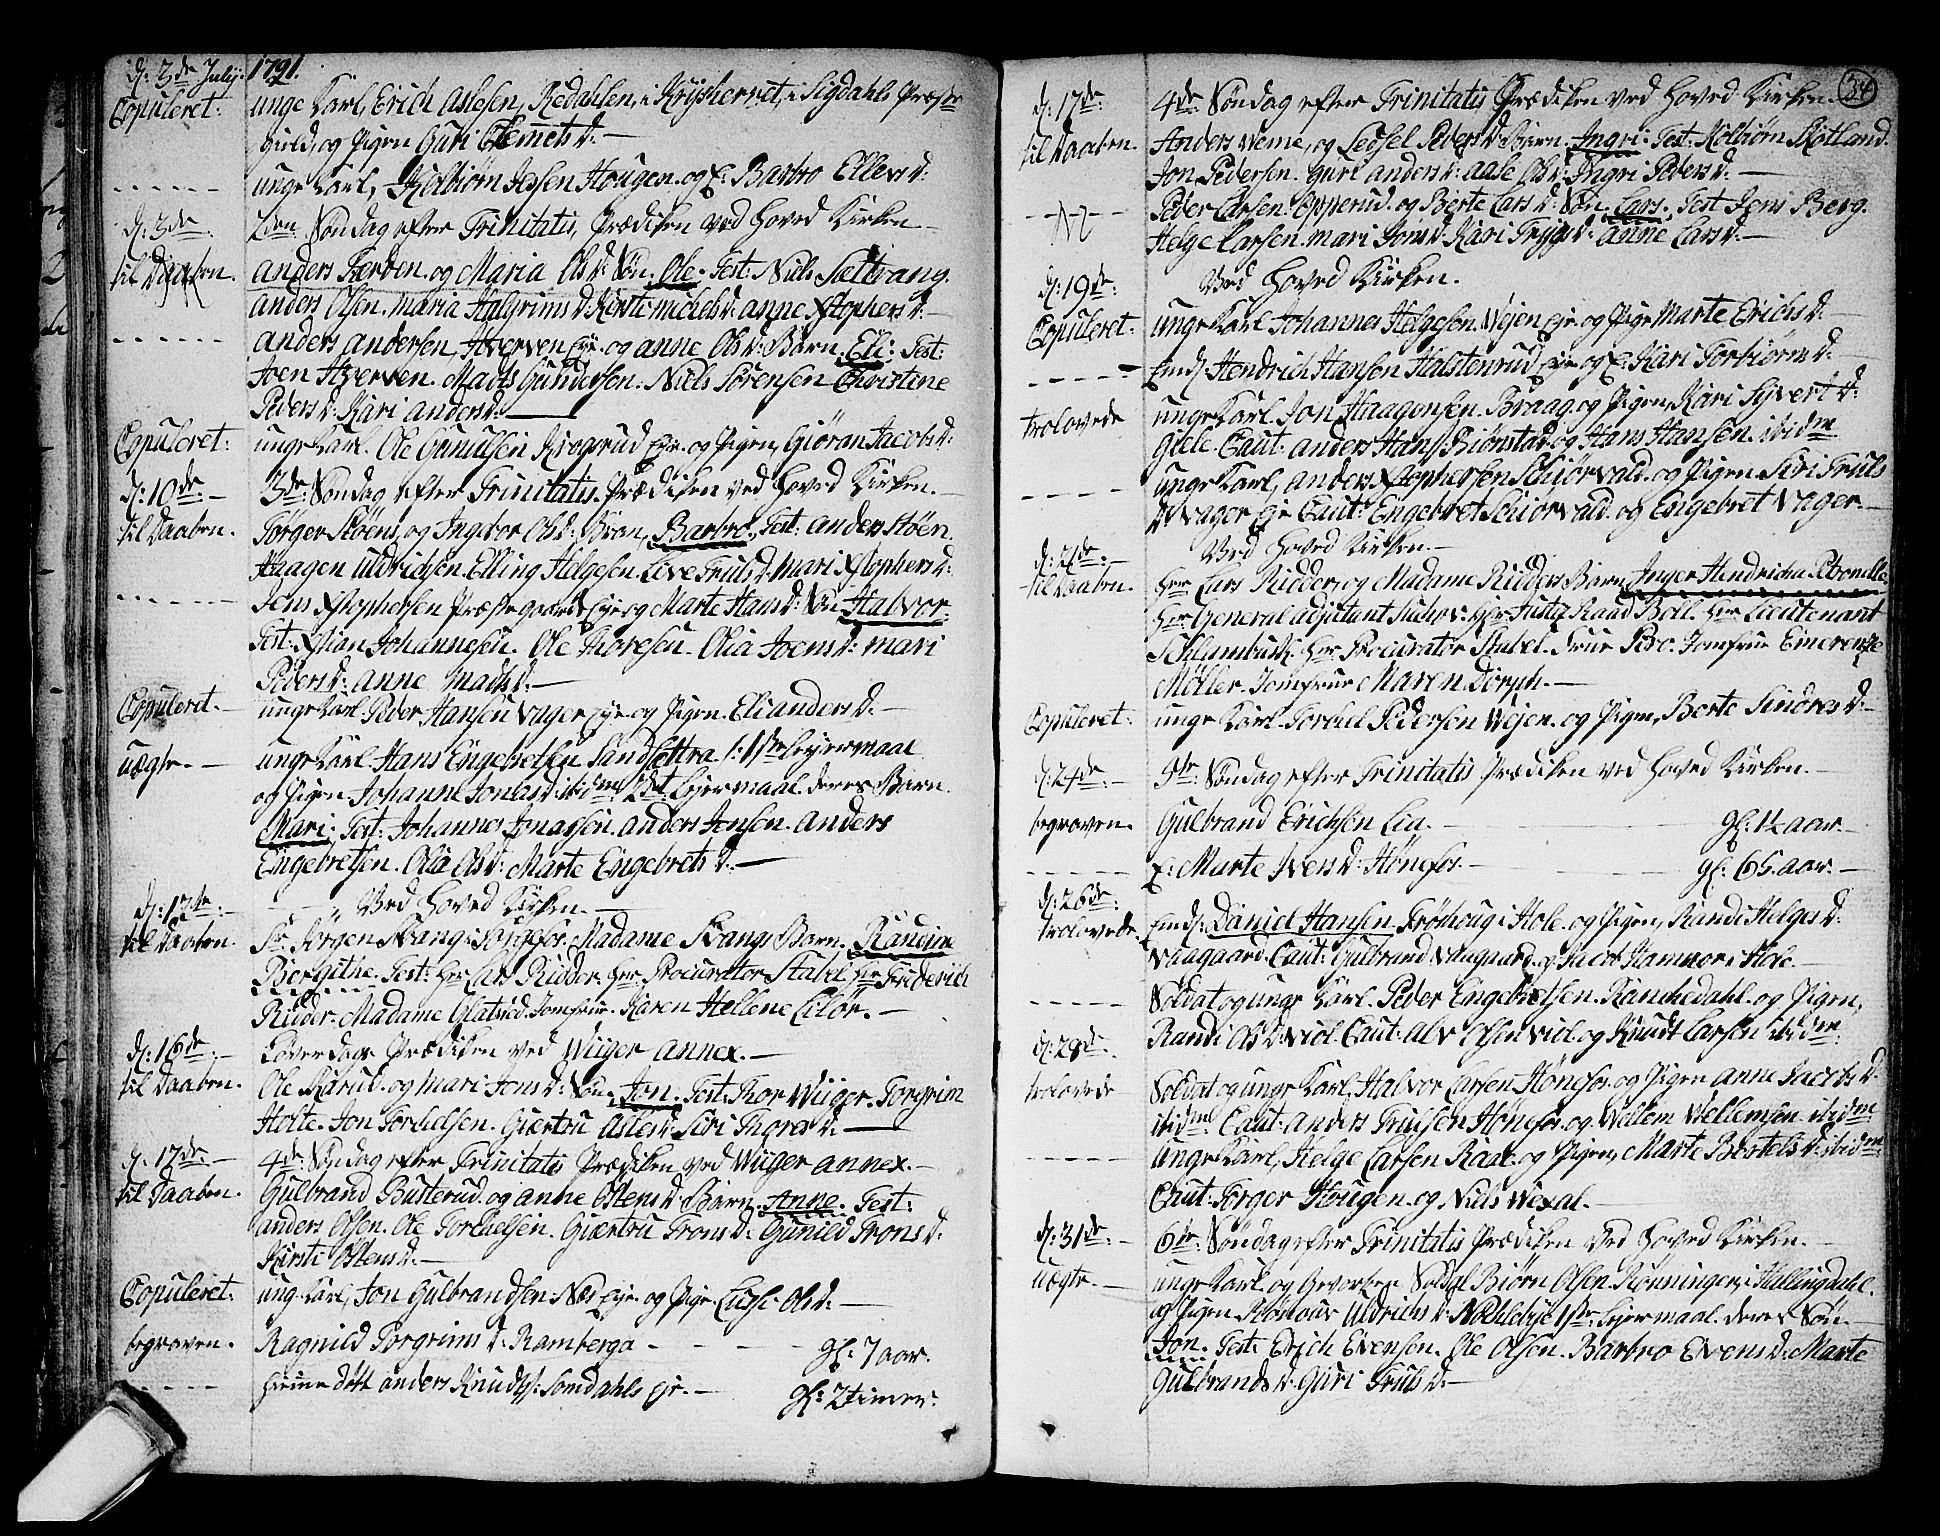 d: 3de July. 1791.
Copuleret: unge Karl, Erich Aslesen, Redahlen, i Kryshernet, i Sigdahls Præste
giæld, og Pigen Guri Clemets d: —
- - - - - - unge Karl, Kolbiørn Jessen Hougen. og E: Barbro Ellevs d:
d: 3de. 2den Søndag efter Trinitatis, Prædiken ved Hoved Kirken. —
til Daaben. anders Færden. og Maria Ols d: Søn. Ole. Test: Niels Sættrang.
anders Olsen. maria Halgrims d: Kirsti michels d: anne Xstophers d: —
- - - - - - anders andersen, Hverven Eje. og anne Ols d: Barn, Eli: Test:
Joen Hverven. Mads Gundersen. Niels Sørensen Christine
Peders d: Kari anders d: —
Copuleret: unge Karl. Ole Gunulsen Krogsrud Eje. og Pigen, Giøran Jacobs d:
d: 10de. — 3de: Søndag efter Trinitatis. Prædiken ved Hoved Kirken. —
til Daaben. Tørger Støens, og Ingebor Ols d: Barn, Barbro. Test: anders Støen.
Haagen Uldrichsen. Elling Helgesen. Live Truls d: mari Xstophers d:
- - - - - - Jens Xstophersen Præstegaards Eje. og Marte Hans d: Søn Halvor:
Test: Xstian Johannesen. Ole Thoresen. Olia Joens d: mari
Peders d: anne Mads d: —
Copuleret. — unge Karl. Peder Hansen Vager Eje. og Pigen. Eli anders d: —
uægte. — unge Karl Hans Engebretsen Sandsættra /: 1ste Leyermaal
og Pigen Johanne Jonas d: ibidm 2det Lejermaal. deres Barn.
Mari: Test: Johannes Jonassen. anders Jensen. anders
Engebretsen. Olia Ols d: Marte Engebrets d: —
d: 13de: — Ved Hoved Kirken. —
til Daaben. Sr. Jørgen Svang i Sørgefos. Madame Svangs Barn. Randine
Bergithe. Test: Hr: Lars Ridder. Hr: Procurator Stabel Hr: Friderich
Ridder. Madame Glatved. Jomfrue. Karen Hellene Liløe. —
d: 16de. — Løverdags Prædiken ved Wiiger annex. —
til Daaben. Ole Karud. og Mari Jons d: Søn. Jon. Test: Thor Wiiger. Torgrim
Holte. Jon Torkelsen. Giærtru Asles d: Siri Ingres d: —
d: 17de. — 4de: Søndag efter Trinitatis Prædiken ved Wiiger annex. —
til Daaben. Gulbrand Busterud. og anne Østens d: Barn. Anne. Test:
anders Olsen. Ole Torkelsen. Giærtru Trons d: Gunild Trons d:
Kirsti Østens d: —
Copuleret: unge Karl, Jon Gulbrandsen Næs Eje. og Pige. Lussi Ols d: —
begraven. Ragnild Torgrims d: Ramberga - - - - gl: 7 aar.
- - - - - - anders Knuds: Somdahls Eje. — gl: 2 timer:

34
d: 17de: 4de: Søndag efter Trinitatis Prædiken ved Hoved Kirken. —
til Daaben. Anders Weme, og Ledsel Peders d: Barn. Ingri: Test: Kolbiørn Skotland.
Jon Pedersen. Guri anders d: aase Ols d: Ingri Peders d: —
- - - - - Peder Larsen. Opperud. og Berte Lars d: Søn. Lars. Test Jens Berg.
Helge Larsen. mari Jons d: Kari Trygs d: anne Lars d: —
d: 19de: Ved Hoved Kirken.
Copuleret: unge Karl Johannes Helgesen Wejen Eje. og Pige Marte Erichs d: —
- - - - - Enk: Hendrich Hansen Halstenrud, Eje. og E: Kari Torbiørns d: —
trolovede unge Karl. Jon Haagensen. Braag. og Pigen, Kari Syvert d:
Giele. Caut: anders Hans: Biørnstad. og Hans Hansen. ibidm
- - - - - unge Karl, anders Xstophersen Schiørvald. og Pigen. Siri Truls
d: Vager Eje Caut: Engebret Schiørvald. og Engebret Vager. —
d: 21de: — Ved Hoved Kirken. —
til Daaben. Hr: Lars Ridders, og Madame Ridders Barn Inger Hendricha Petronelle
Hr: General adjutant Huhov. Hr: Justis Raad Beil. Hr: Lieutenant
Schlambusk. Hr: Procurator Stabel. Frue Bro. Jomfrue Emerentze
Møller. Jomfrue Maren Dorph. —
Copuleret: unge Karl. Torkel Pedersen Wejen. og Pigen, Berte Sindres d: —
d: 24de — 5te: Søndag efter Trinitatis Prædiken ved Hoved Kirken. —
begraven. Gulbrand Erichsen Lia. — gl: 1½ aar. —
- - - - - E: Marte Ivers d: Hønefos. — gl: 65. aar. —
d: 26de:
trolovede. Enk: Daniel Hansen. Frøhoug i Hole. og Pigen, Randi Helges d:
Vaagaard. Caut: Gulbrand Vaagaard. og Jacob Hamnor i Hole. —
- - - - - Soldat og unge Karl. Peder Engebretsen. Ranchedahl. og Pigen,
Randi Ols d: Viol. Caut: alv Olsen Viol. og Knudt Larsen ibidm:
d: 28de.
trolovede Soldat og unge Karl, Halvor Larsen Hønefos. og Pigen Anne Jacobs d:
ibidm. Caut: anders Trulsen Hønefos. og Wellem Wellemsen ibidm
- - - - - unge Karl, Helge Larsen Raae. og Pigen, Marte Bertels d: ibidm
Caut: Tørger Hougen. og Niels Wexal. —
d: 31de: — 6te: Søndag efter Trinitatis Prædiken ved Hoved Kirken. —
uægte. — unge Karl. og Gevorben Soldat Biørn Olsen. Rønningen, i Hallingdahl.
og Pigen Uldrichs d: 1ste: Lejermaal. deres Søn. —
Jon. Test: Erich Evensen. Ole Olsen. Barbro Evens d: Marte
Gulbrands d: Guri Truls d: —